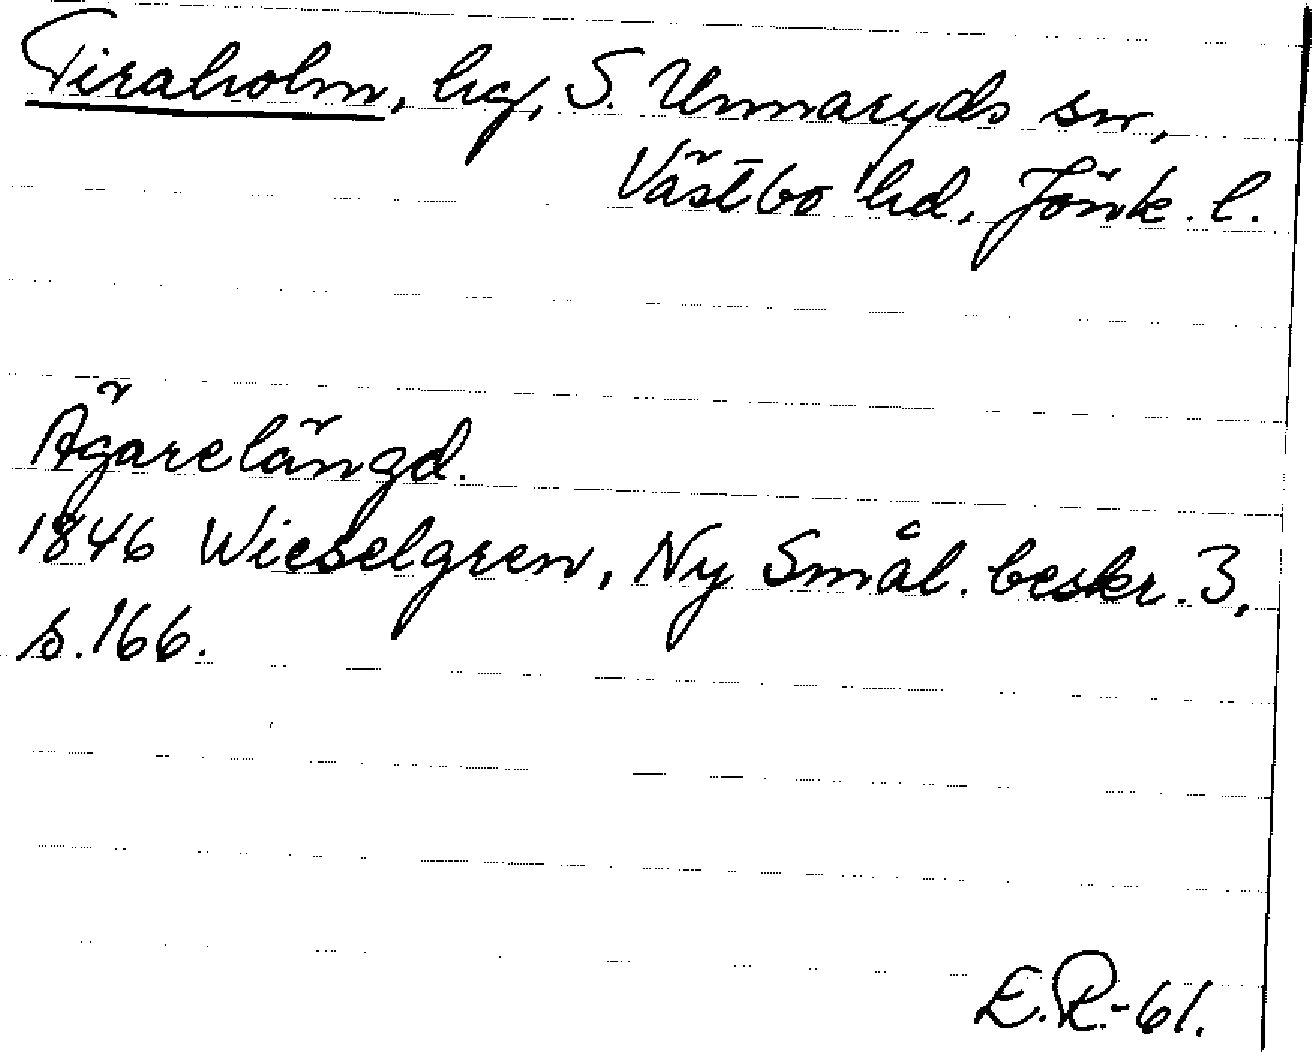 Tiraholm, hg, S. Unnaryds sn,
Västbo hd, Jönk. l.
Ägarelängd.
1846 Wieselgren, Ny Smål. beskr. 3,
s. 166.
E.R.-61.